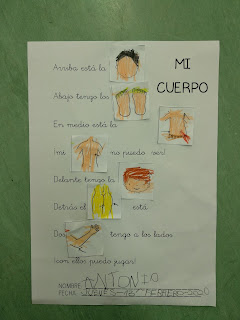 MI
CUERPO
Arriba está la
Abajo tengo los
En medio está la
¡mi no puedo ver!
Delante tengo la
Detrás el está
Dos tengo a los lados
¡con ellos puedo jugar!
NOMBRE ANTONIO
FECHA JUEVES-